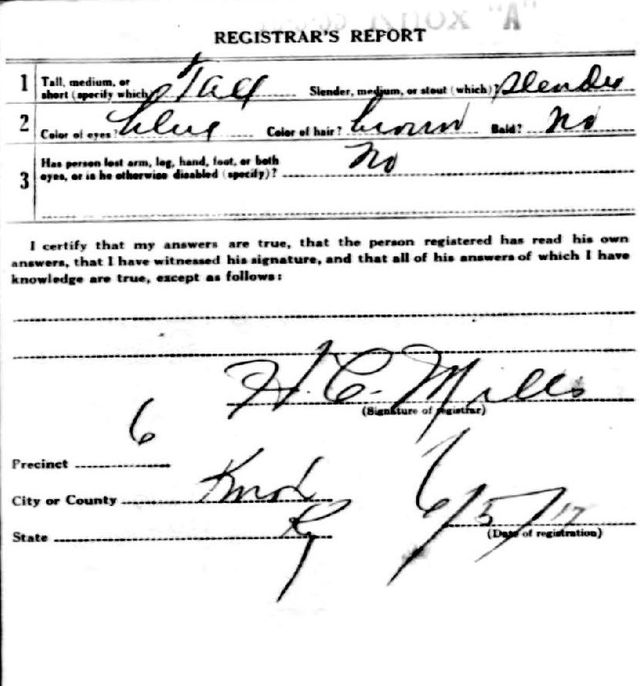 REGISTRAR'S REPORT
1 Tall, medium, or short (specify which) Tall Slender, medium, or stout (which)? slender
2 Color of eyes? blue Color of hair? brown Bald? No
3 Has person lost arm, leg, hand, foot, or both
eyes, or is he otherwise disabled (specify)? No
I certify that my answers are true, that the person registered has read his own
answers, that I have witnessed his signature, and that all of his answers of which I have
knowledge are true, except as follows:
H. C. Mills
(Signature of registrar)
Precinct 6
City or County Knox
State Ky
6/5/17
(Date of registration)